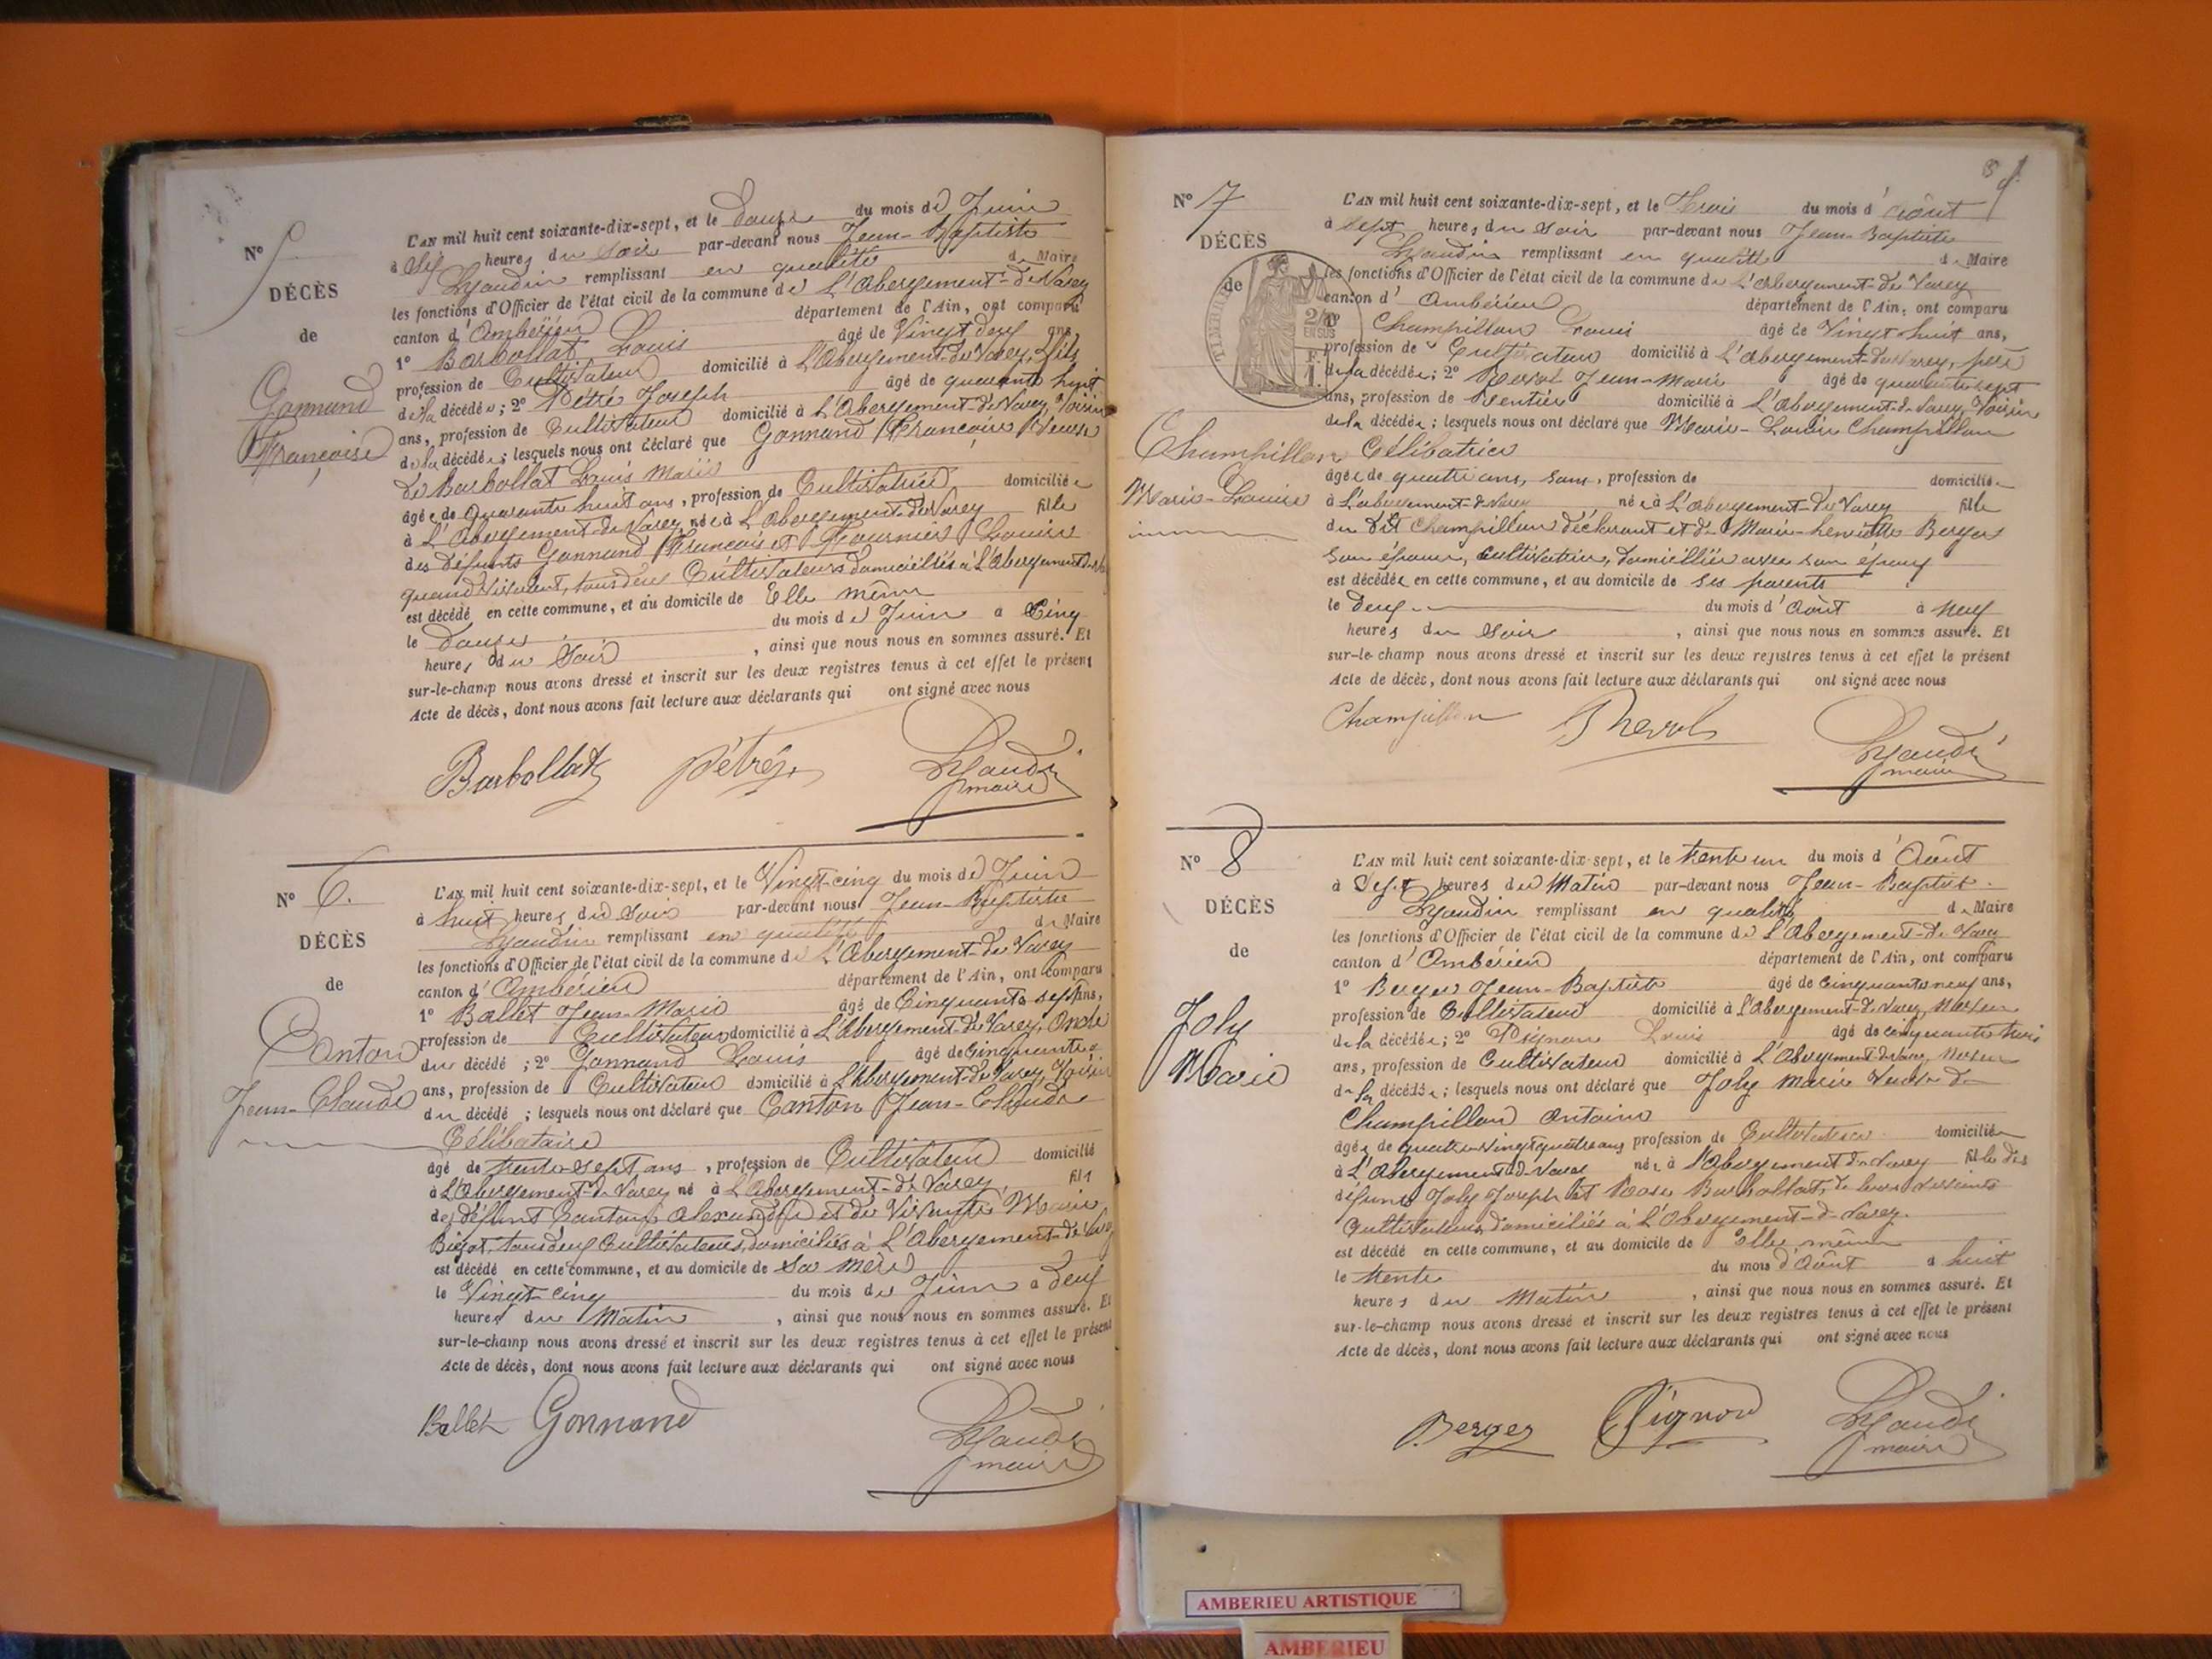 Nº 5
DÉCÈS
de
Gonnand
Françoise
L'AN mil huit cent soixante-dix-sept, et le Douze du mois de Juin
à Six heures du Soir par-devant nous Jean-Baptiste
Lyaudin remplissant en qualité de Maire
les fonctions d'Officier de l'état civil de la commune de L'Abergement-de Varey
canton d'Ambérieu département de l'Ain, ont comparu
1º Barbollat Louis âgé de Vingt deux ans,
profession de Cultivateur domicilié à L'Abergement-de Varey, Fils
de la décédée; 2º Pétré Joseph âgé de quarante huit
ans, profession de Cultivateur domicilié à L'Abergement-de Varey, Voisin
de la décédée; lesquels nous ont déclaré que Gonnand Françoise Veuve
de Barbollat Louis Marie
âgée de Quarante huit ans, profession de Cultivatrice domiciliée
à L'Abergement-de Varey, née à L'Abergement-de Varey fille
des défunts Gonnand François et Fournier Louise
quand vivaient, tous deux Cultivateurs domiciliés à L'Abergement-de
est décédé en cette commune, et au domicile de Elle même
le Douze du mois de Juin à Cinq
heures du Soir, ainsi que nous nous en sommes assuré. Et
sur-le-champ nous avons dressé et inscrit sur les deux registres tenus à cet effet le présent
Acte de décès, dont nous avons fait lecture aux déclarants qui ont signé avec nous
Barbollat Pétré J. Lyaudi
maire
Nº 6.
DÉCÈS
de
Canton
Jean-Claude
L'AN mil huit cent soixante-dix-sept, et le Vingt-cinq du mois de Juin
à huit heures du Soir par-devant nous Jean-Baptiste
Lyaudin remplissant en qualité de Maire
les fonctions d'Officier de l'état civil de la commune de L'Abergement-de Varey
canton d'Ambérieu département de l'Ain, ont comparu
1º Ballet Jean-Marie âgé de Cinquante sept ans,
profession de Cultivateur domicilié à L'Abergement-de Varey, Oncle
du décédé; 2º Gonnand Louis âgé de Cinquante
ans, profession de Cultivateur domicilié à L'Abergement-de Varey, Voisin
du décédé; lesquels nous ont déclaré que Canton Jean-Claude
Célibataire
âgé de trente-sept ans, profession de Cultivateur domicilié
à L'Abergement-de Varey né à L'Abergement-de Varey, fils
de défunt Canton Alexandre et de Vivante Marie
tous deux Cultivateurs, domiciliés à L'Abergement-de Varey
est décédé en cette commune, et au domicile de Sa Mère
le Vingt-cinq du mois de Juin à deux
heures du Matin, ainsi que nous nous en sommes assuré. Et
sur-le-champ nous avons dressé et inscrit sur les deux registres tenus à cet effet le présent
Acte de décès, dont nous avons fait lecture aux déclarants qui ont signé avec nous
Ballet Gonnand Lyaudi
maire
Nº 7
DÉCÈS
de
Champillon
Marie-Louise
L'AN mil huit cent soixante-dix-sept, et le Trois du mois d'Août
à Sept heures du Soir par-devant nous Jean-Baptiste
Lyaudin remplissant en qualité de Maire
les fonctions d'Officier de l'état civil de la commune de L'Abergement-de Varey
canton d'Ambérieu département de l'Ain, ont comparu
1º Champillon Louis âgé de Vingt huit ans,
profession de Cultivateur domicilié à L'Abergement-de Varey, père
de la décédée; 2º Jean-Marie âgé de quarante sept
ans, profession de Rentier domicilié à L'Abergement-de Varey, Voisin
de la décédée; lesquels nous ont déclaré que Marie-Louise Champillon
Célibatrice
âgée de quatre ans, sans, profession de domiciliée
à L'Abergement-de Varey née à L'Abergement-de Varey fille
du dit Champillon déclarant et de Marie-henriette Berger
son épouse, Cultivatrice, domiciliée avec son époux
est décédée en cette commune, et au domicile de ses parents
le deux du mois d'Août à neuf
heures du Soir, ainsi que nous nous en sommes assuré. Et
sur-le-champ nous avons dressé et inscrit sur les deux registres tenus à cet effet le présent
Acte de décès, dont nous avons fait lecture aux déclarants qui ont signé avec nous
Champillon Lyaudi
maire
Nº 8
DÉCÈS
de
Joly
Marie
L'AN mil huit cent soixante-dix-sept, et le trente un du mois d'Août
à Sept heures du Matin par-devant nous Jean-Baptiste
Lyaudin remplissant en qualité de Maire
les fonctions d'Officier de l'état civil de la commune de L'Abergement-de Varey
canton d'Ambérieu département de l'Ain, ont comparu
1º Berger Jean-Baptiste âgé de Cinquante neuf ans,
profession de Cultivateur domicilié à L'Abergement-de Varey, Neveu
de la décédée; 2º Pignon Louis âgé de cinquante trois
ans, profession de Cultivateur domicilié à L'Abergement de Varey, Neveu
de la décédée; lesquels nous ont déclaré que Joly Marie Veuve de
Champillon Antoine
âgée de quatre-vingt quatre ans profession de Cultivatrice domiciliée
à L'Abergement-de Varey née à L'Abergement de Varey fille des
défunts Joly Joseph et Rose Barbollat, de leurs vivants
Cultivateurs, domiciliés à L'Abergement-de Varey.
est décédé en cette commune, et au domicile de Elle même
le trente du mois d'Août à huit
heures du Matin, ainsi que nous nous en sommes assuré. Et
sur-le-champ nous avons dressé et inscrit sur les deux registres tenus à cet effet le présent
Acte de décès, dont nous avons fait lecture aux déclarants qui ont signé avec nous
Berger Pignon Lyaudi
maire
AMBERIEU ARTISTIQUE
AMBERIEU